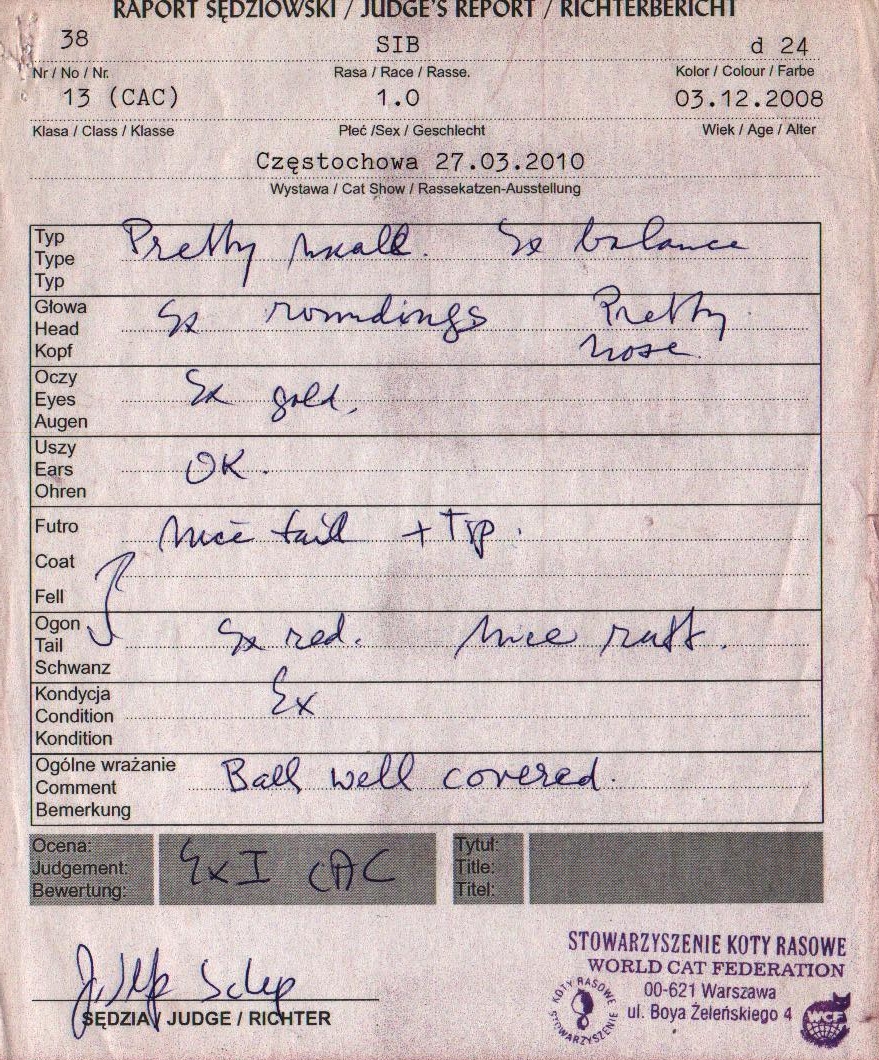 RAPORT SĘDZIOWSKI / JUDGE'S REPORT / RICHTERBERICHT
38 SIB d 24
Nr / No / Nr. Rasa / Race / Rasse. Kolor / Colour / Farbe
13 (CAC) 1.0 03.12.2008
Klasa / Class / Klasse Płeć /Sex / Geschlecht Wiek / Age / Alter
Częstochowa 27.03.2010
Wystawa / Cat Show / Rassekatzen-Ausstellung
Typ
Type Pretty small. Ex balance
Typ
Głowa
Head Ex roundings Pretty
Kopf nose.
Oczy
Eyes Ex gold.
Augen
Uszy
Ears OK.
Ohren
Futro nice tail + Typ.
Coat
Fell
Ogon
Tail Ex red. Nice ruff.
Schwanz
Kondycja
Condition Ex
Kondition
Ogólne wrażanie
Comment Ball well covered.
Bemerkung
Ocena: Tytuł:
Judgement: Ex I CAC Title:
Bewertung: Titel:
SĘDZIA / JUDGE / RICHTER
STOWARZYSZENIE KOTY RASOWE
WORLD CAT FEDERATION
00-621 Warszawa
ul. Boya Żeleńskiego 4
KOTY RASOWE
STOWARZYSZENIE
WCF